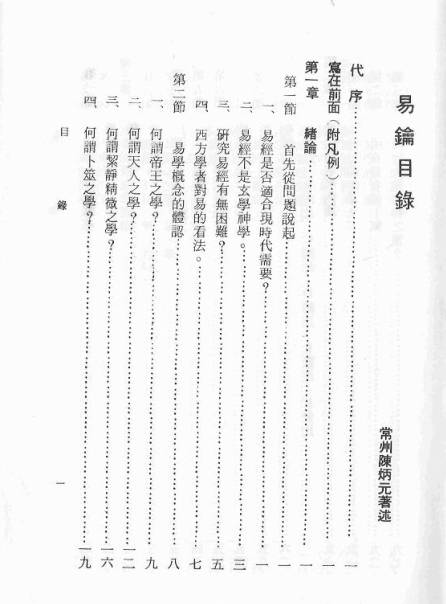 易鑰目錄
常州陳炳元著述
代序⋯⋯⋯⋯⋯⋯一
寫在前面（附凡例）⋯⋯⋯⋯⋯⋯一
第一章 緒論⋯⋯⋯⋯⋯⋯一
第一節 首先從問題說起⋯⋯⋯⋯⋯⋯一
一、易經是否適合現時代需要？⋯⋯⋯⋯⋯⋯一
二、易經不是玄學神學。⋯⋯⋯⋯⋯⋯三
三、研究易經有無困難？⋯⋯⋯⋯⋯⋯五
四、西方學者對易的看法。⋯⋯⋯⋯⋯⋯七
第二節 易學概念的體認⋯⋯⋯⋯⋯⋯八
一、何謂帝王之學？⋯⋯⋯⋯⋯⋯九
二、何謂天人之學？⋯⋯⋯⋯⋯⋯一二
三、何謂絜靜精微之學？⋯⋯⋯⋯⋯⋯一六
四、何謂卜筮之學？⋯⋯⋯⋯⋯⋯一九
目錄 一